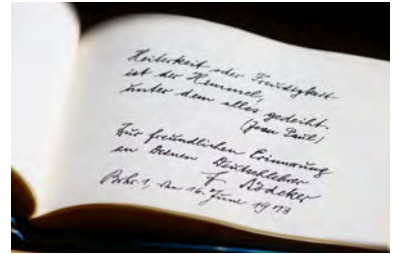 Heiterkeit oder Freudigkeit
ist der Himmel,
unter dem alles gedeiht.
(Jean Paul)
Zur freundlichen Erinnerung
an Deinen Deutschlehrer
F. Rödeker
den 16. Juni 19